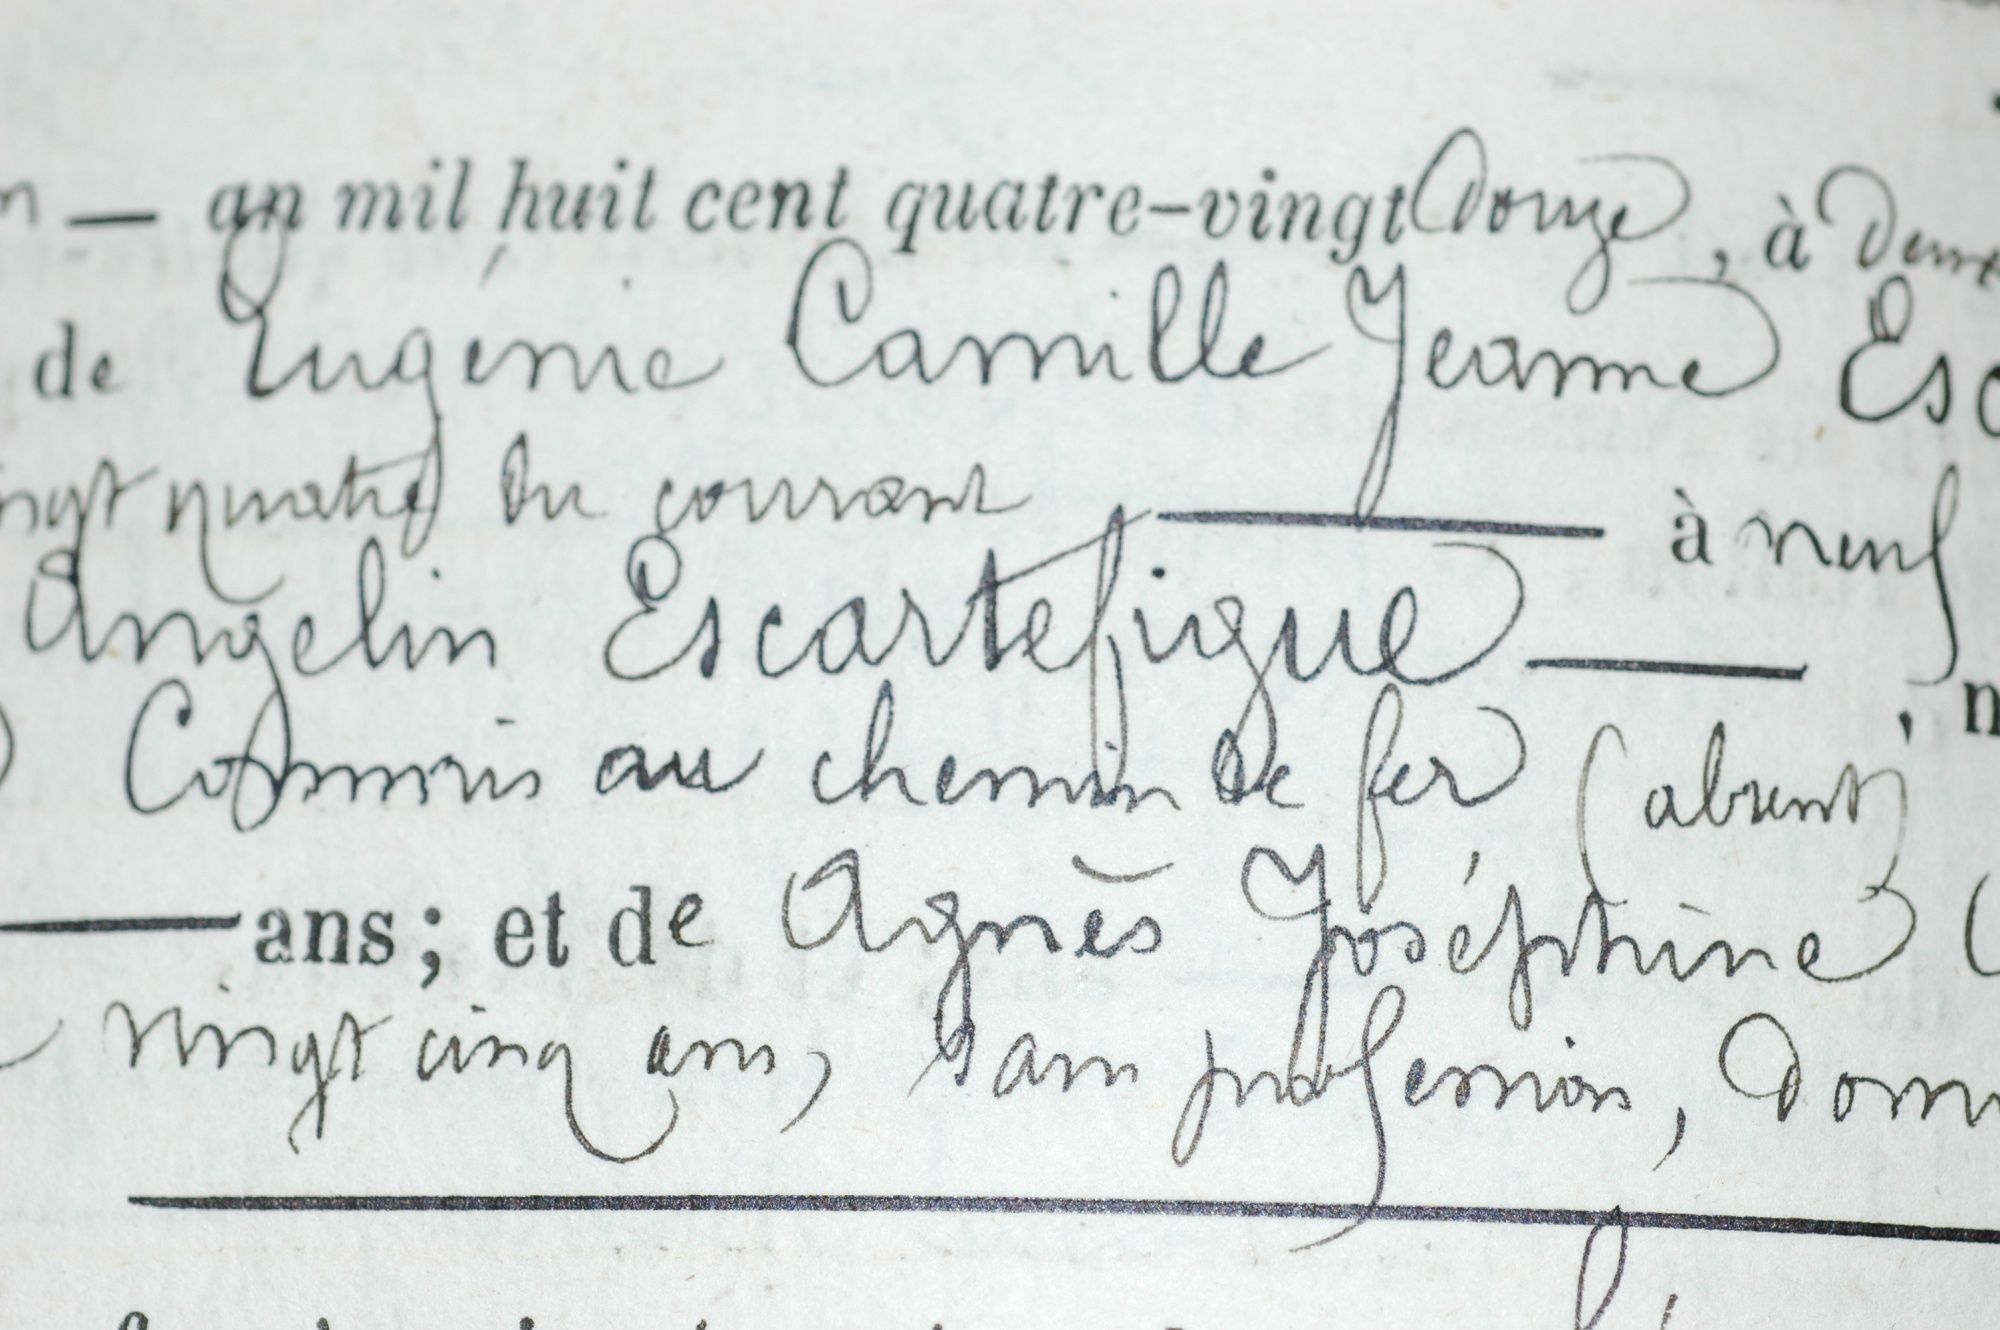 — an mil huit cent quatre-vingt douze, à deux
de Eugénie Camille Jeanne Esc
ingt quatre du courant — à neuf
Angelin Escartefigue — , n
Commis au chemin de fer (absent)
— ans; et de Agnès Joséphine
vingt cinq ans, sans profession, dom